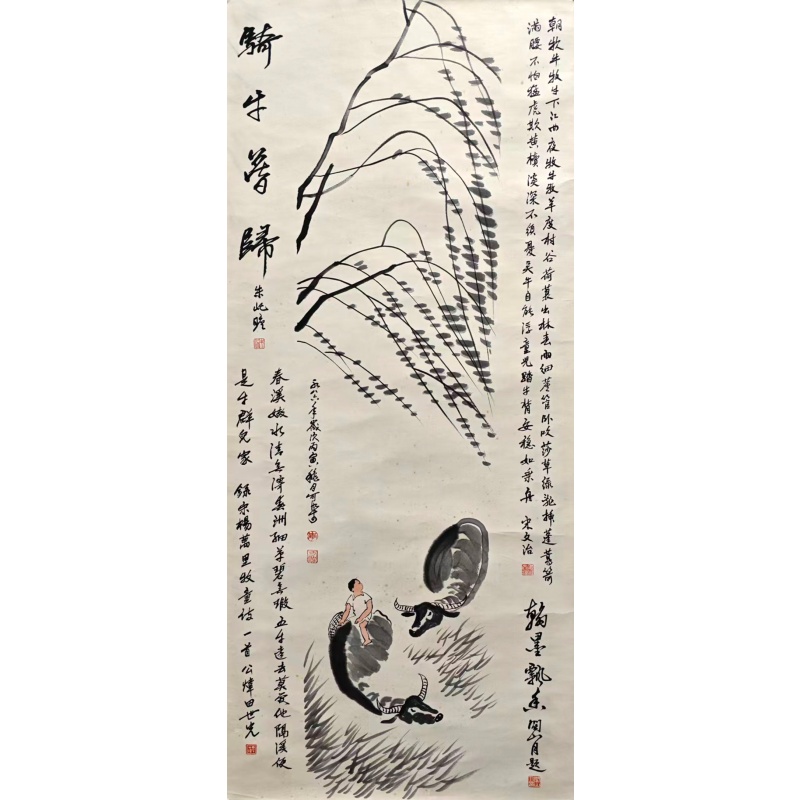 朝牧牛牧牛下江曲夜牧牛牧羊度村谷荷蓑出林春雨細蘆管卧吹莎草綠亂插蓬蒿箭
滿腰不怕猛虎欺黃犢溪深不須憂吴牛自能浮童兒踏牛背安穩如乘舟 宋文治
翰墨飄香 関山月題
騎牛暮歸
朱屺瞻
一九八六年歲次丙寅穐月可染畫
春溪嫩水清無滓春洲細草碧無瑕五牛遠去莫管他隔溪便
是牛群兒家 錄宋楊萬里牧童詩一首公煒田世光